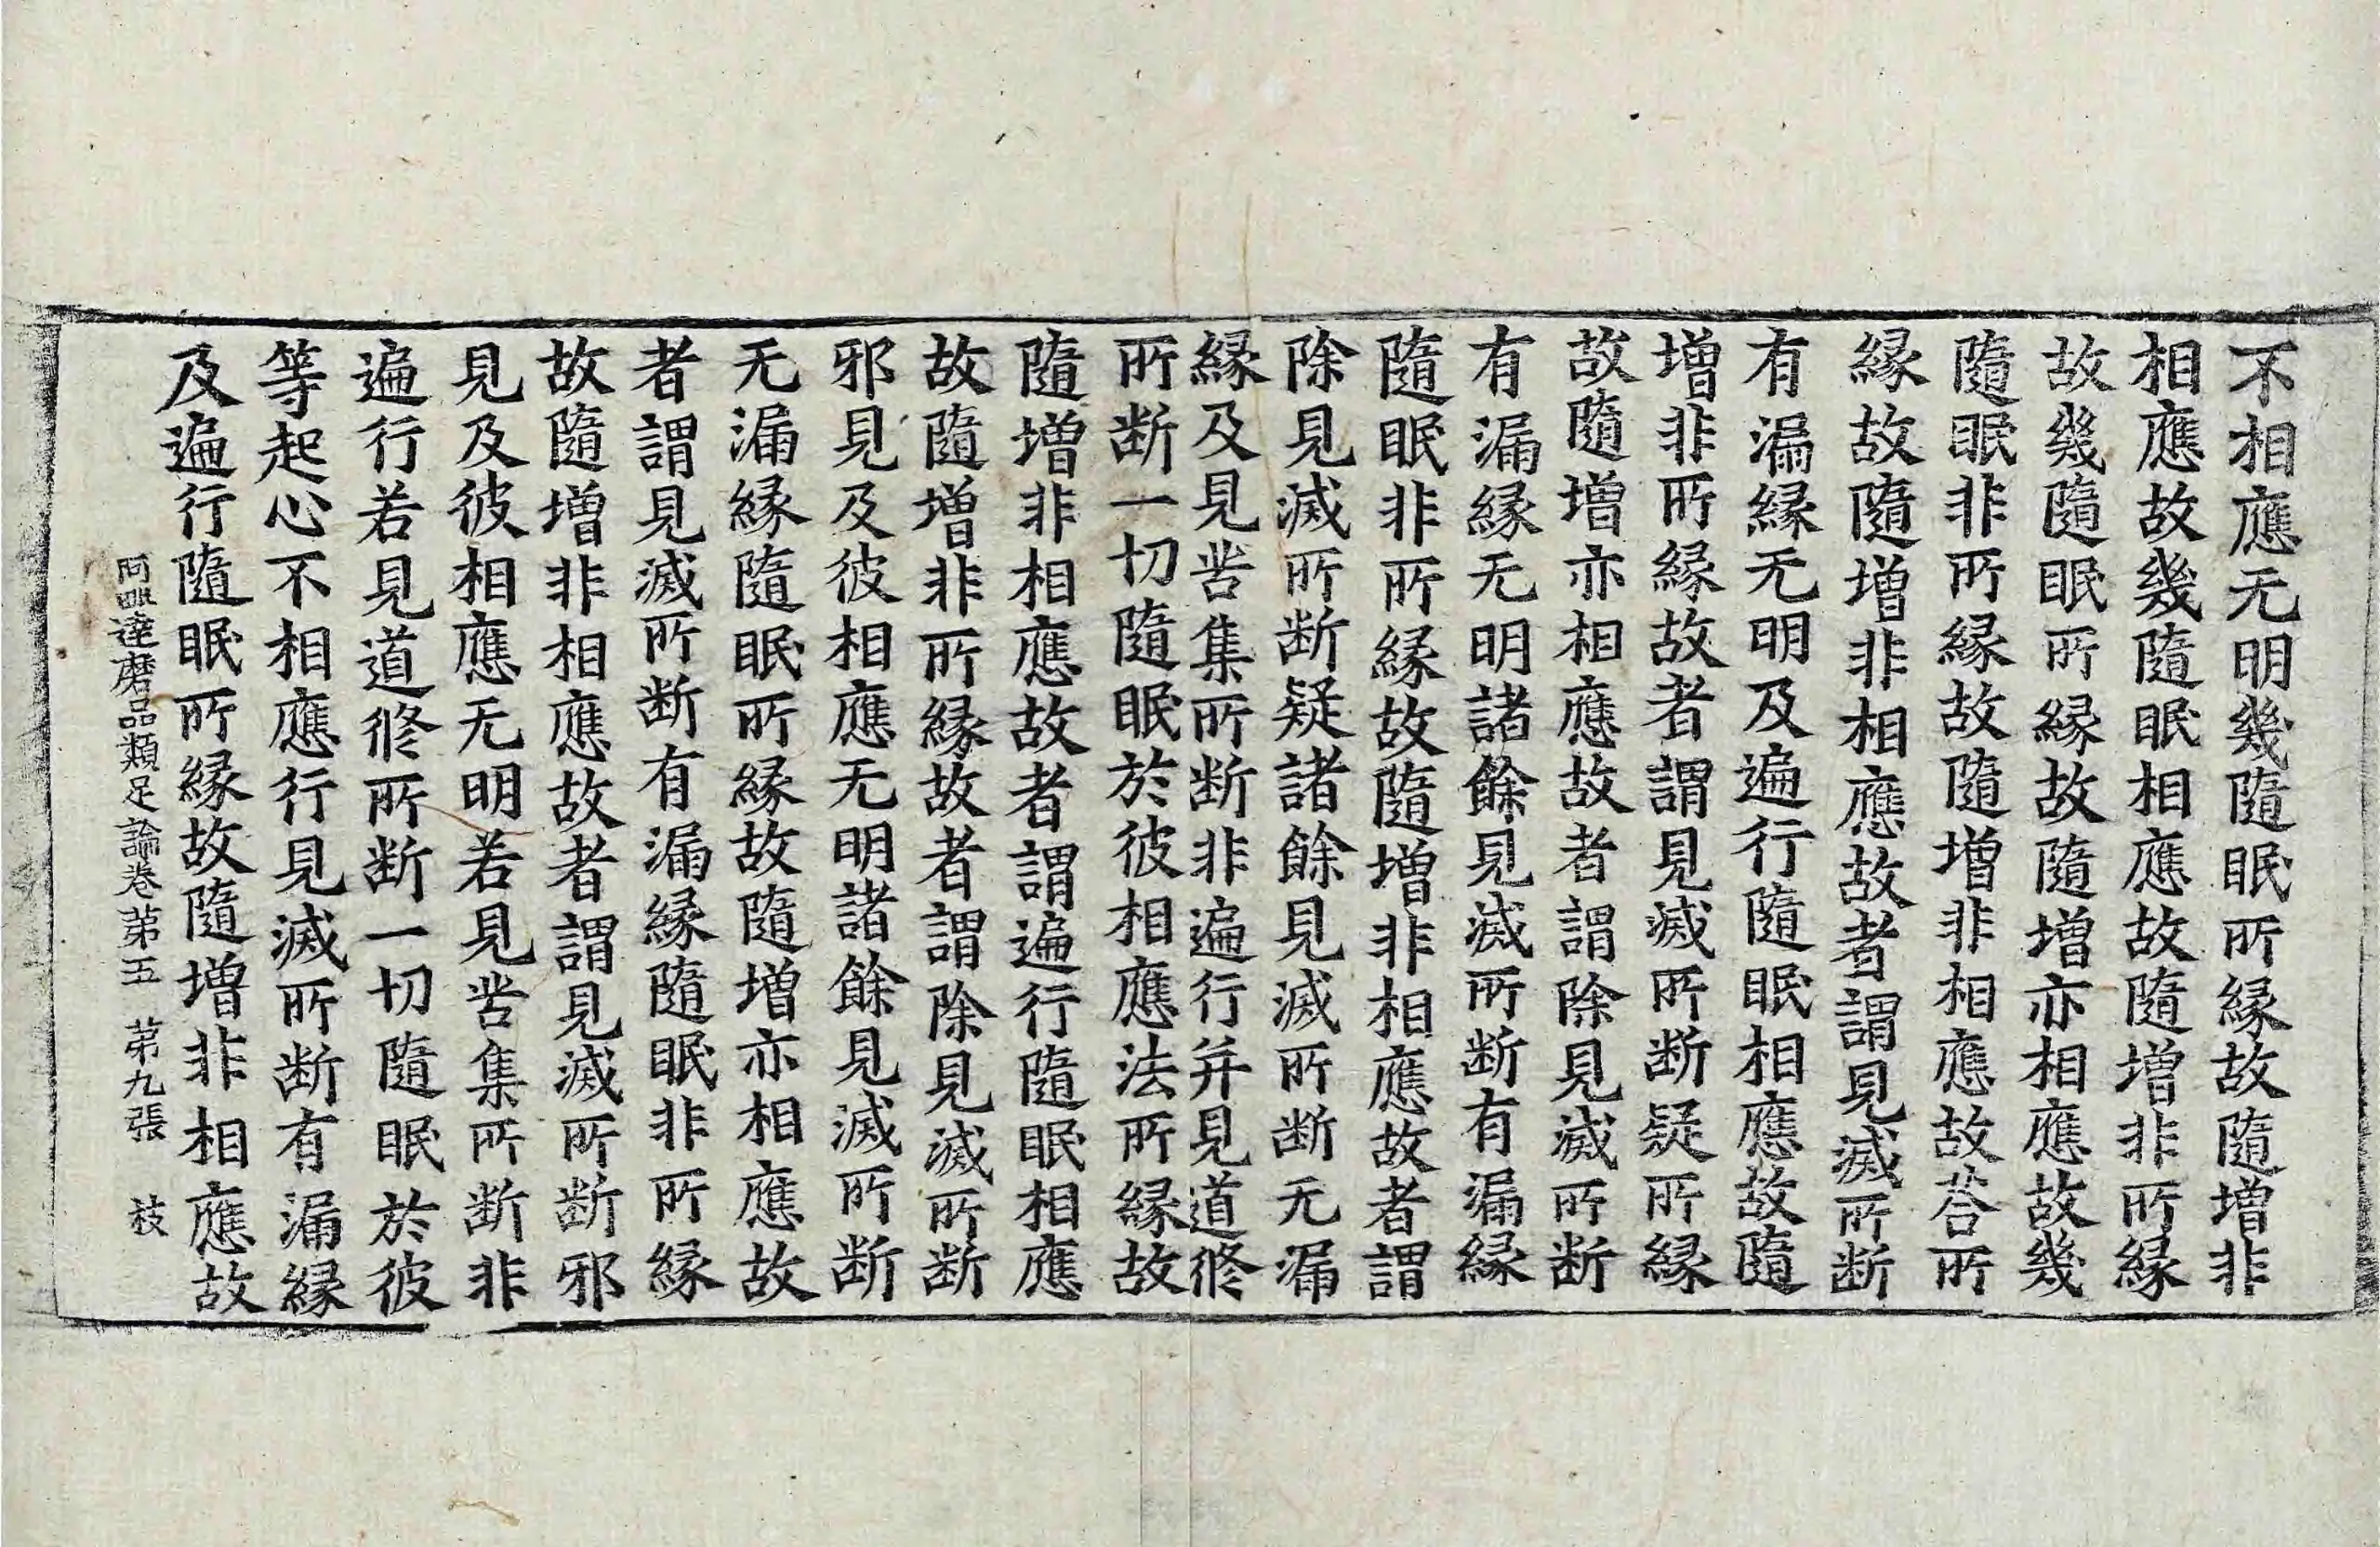 不相應无明幾隨眠所緣故隨增非
相應故幾隨眠相應故隨增非所緣
故幾隨眠所緣故隨增亦相應故幾
隨眠非所緣故隨增非相應故荅所
緣故隨增非相應故者謂見滅所断
有漏緣无明及遍行隨眠相應故隨
增非所緣故者謂見滅所断疑所緣
故隨增亦相應故者謂除見滅所断
有漏緣无明諸餘見滅所断有漏緣
隨眠非所緣故隨增非相應故者謂
除見滅所断疑諸餘見滅所断无漏
緣及見苦集所断非遍行并見道修
所断一切隨眠於彼相應法所緣故
隨增非相應故者謂遍行隨眠相應
故隨增非所緣故者謂除見滅所断
邪見及彼相應无明諸餘見滅所断
无漏緣隨眠所緣故隨增亦相應故
者謂見滅所断有漏緣隨眠非所緣
故隨增非相應故者謂見滅所断邪
見及彼相應无明若見苦集所断非
遍行若見道修所断一切隨眠於彼
等起心不相應行見滅所断有漏緣
及遍行隨眠所緣故隨增非相應故
阿毗達磨品類足論卷第五 第九張 枝